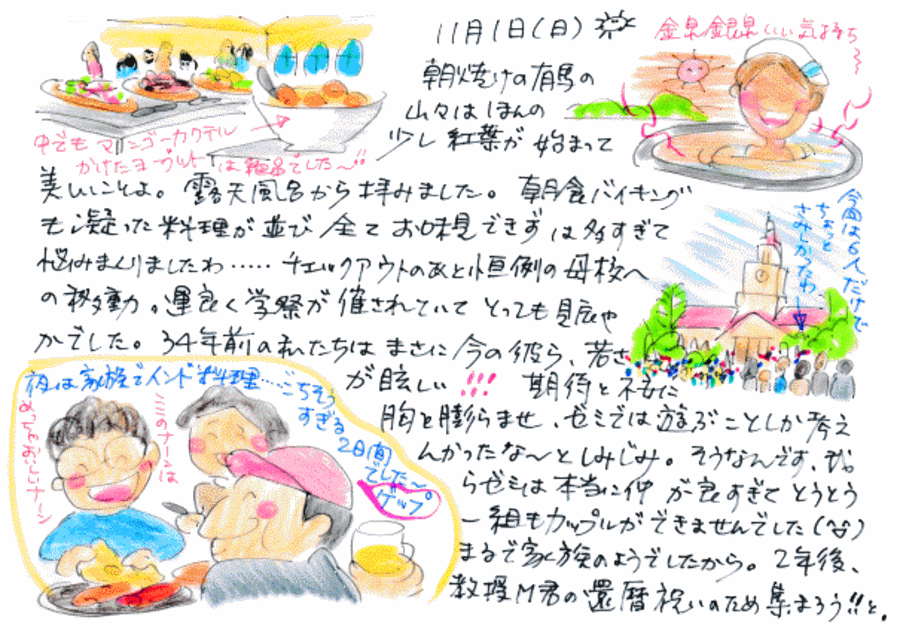 11月1日(日)
朝焼けの有馬の
山々はほんの
少し紅葉が始まって
美しいことよ。露天風呂から拝みました。朝食バイキング
も凝った料理が並び全てお味見できずは多すぎて
悩みまくりましたわ・・・・・チェックアウトのあと恒例の母校へ
の移動。運良く学祭が催されていてとっても賑や
かでした。34年前の私たちはまさに今の彼ら、若さ
が眩しい!!! 期待と不安に
胸を膨らませ、ゼミでは遊ぶことしか考え
んかったな〜としみじみ。そうなんです、だか
らゼミは本当に仲が良すぎてとうとう
一組もカップルができませんでした(笑)
まるで家族のようでしたから。2年後、
教授M君の還暦祝いのため集まろう!!と。
金泉銀泉いい気持ち〜
中でもマンゴーカクテル
かけたヨーグルトは絶品でした〜
今回は6人だけで
ちょっと
さみしかったわ
夜は家族でインド料理・・・ごちそう
すぎる
2日間
でした〜
ゲップ
ここのナーンは
めっちゃおいしいナーン